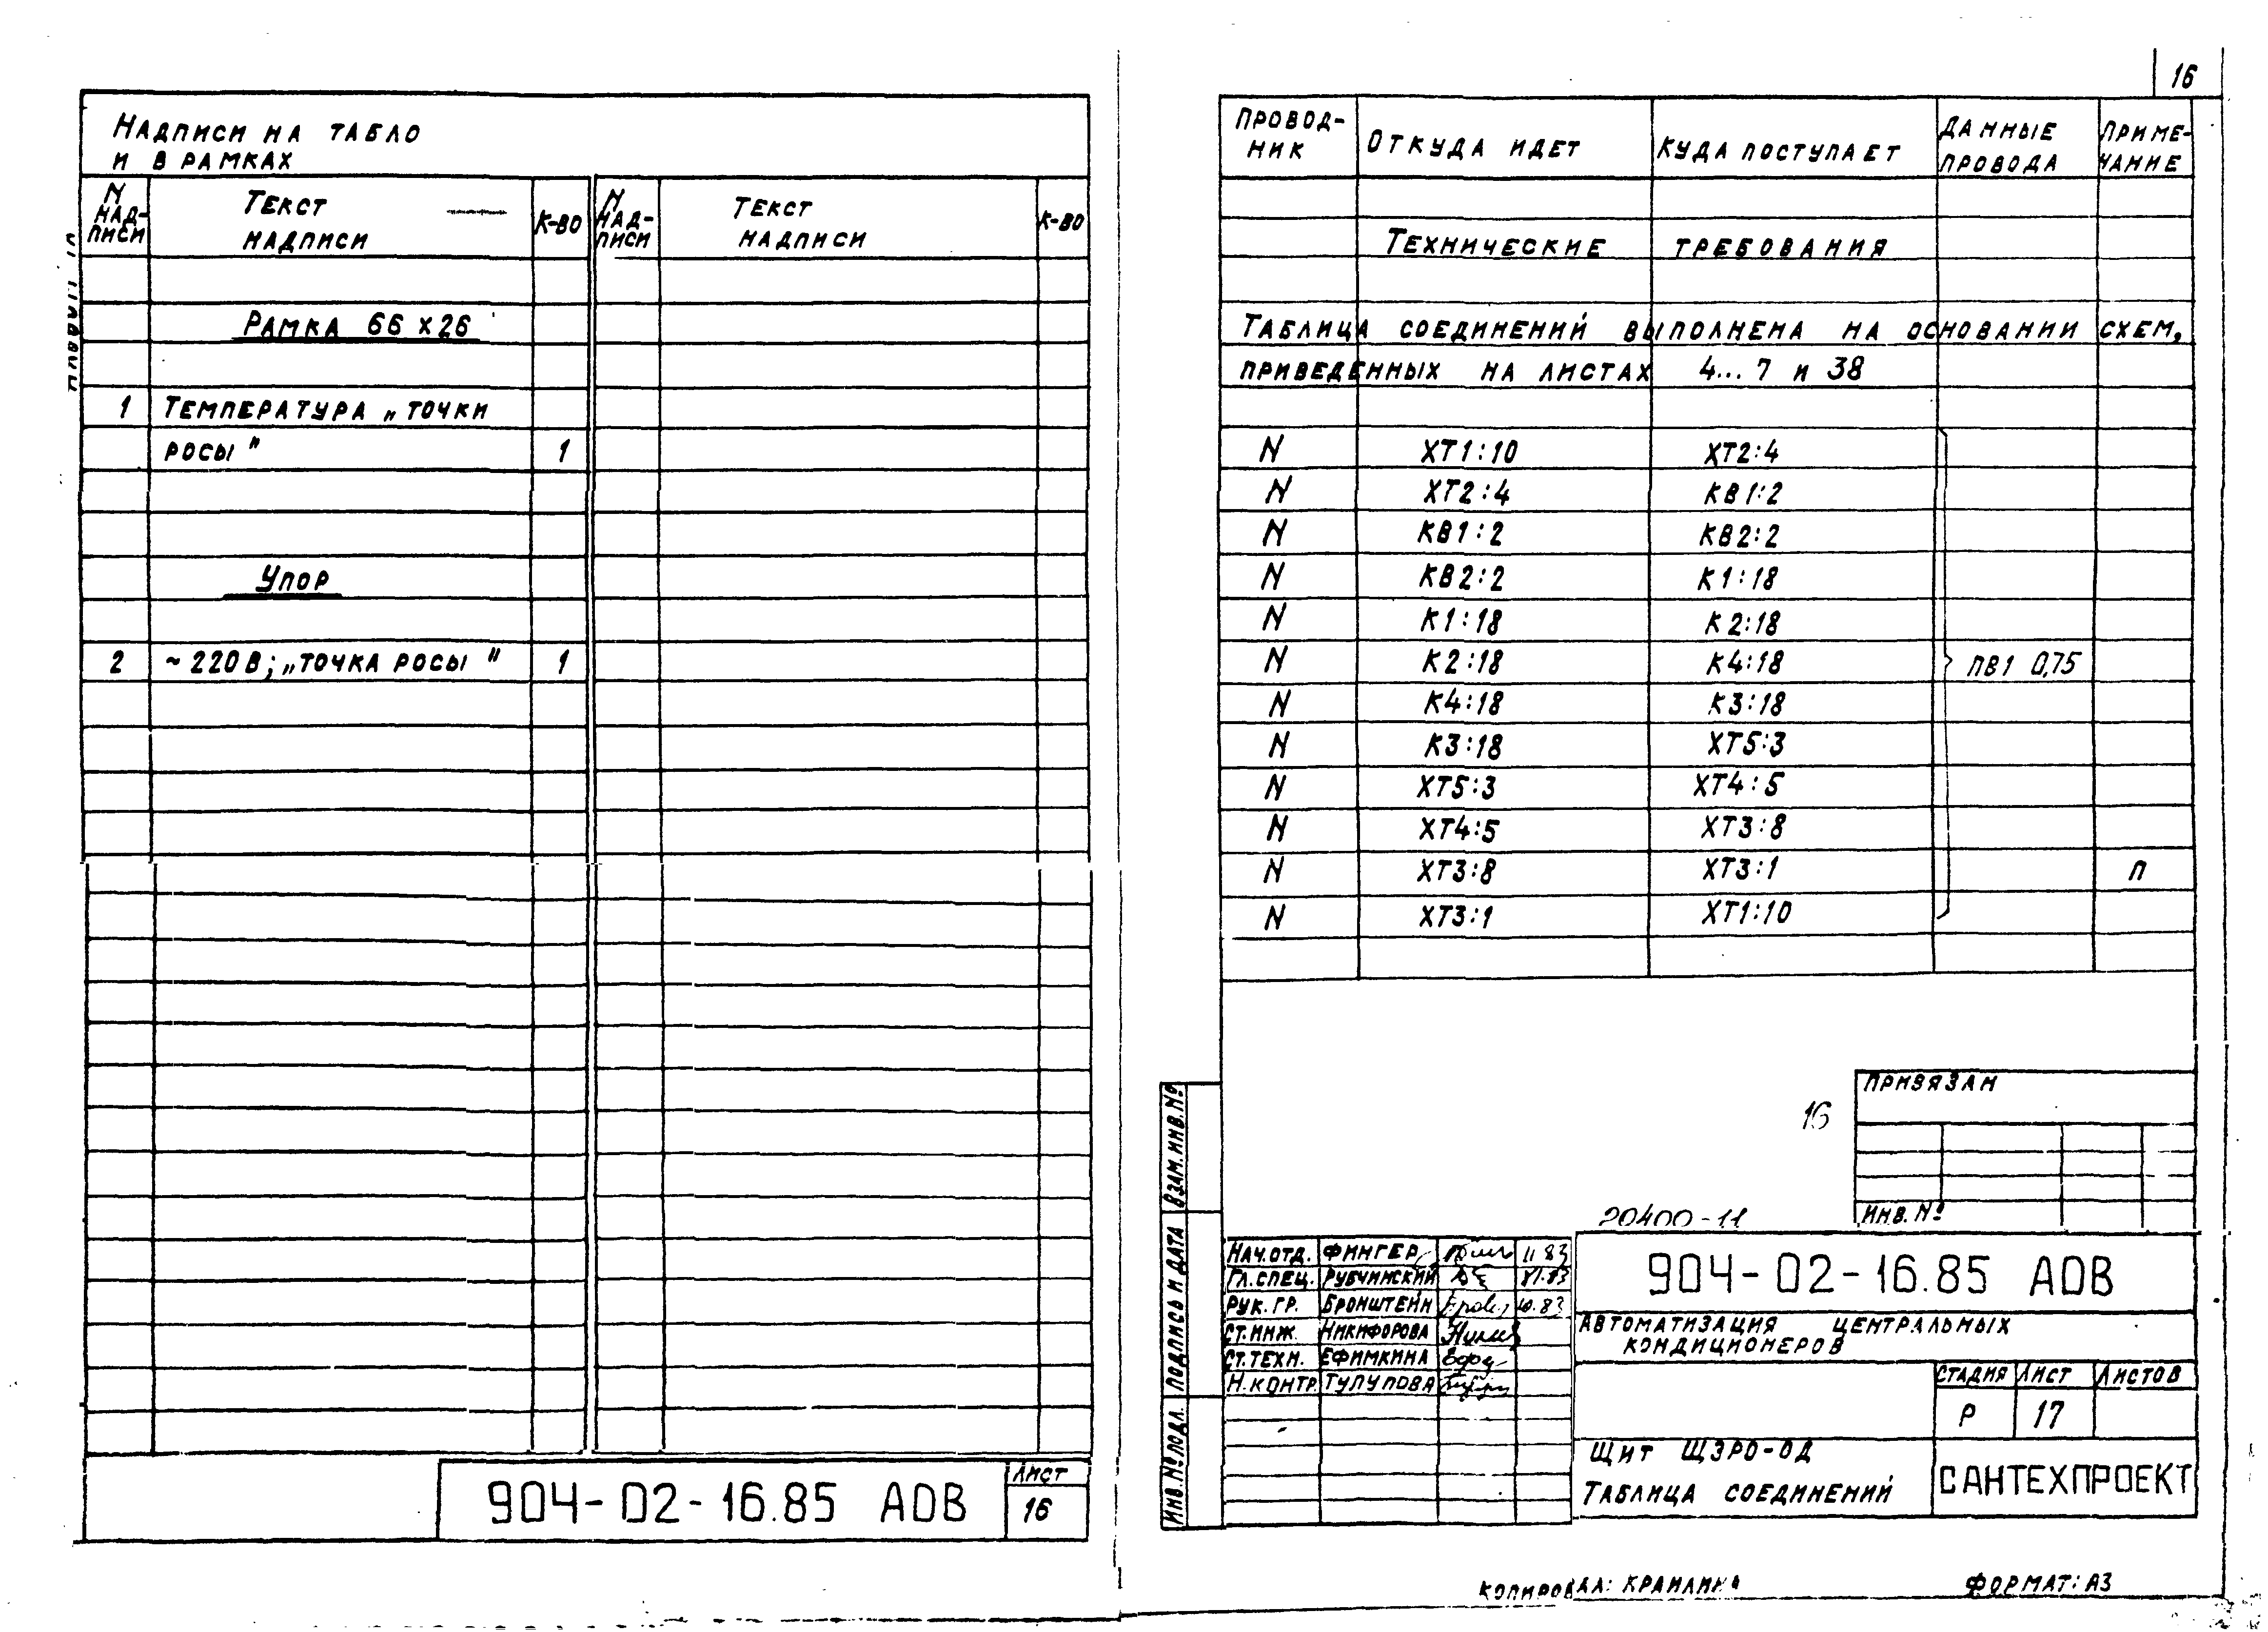 Надписи на табло
и в рамках
N надписи Текст надписи к-во N надписи Текст надписи к-во
Рамка 66 х 26
1 Температура „точки
росы" 1
Упор
2 ~220В; „точка росы" 1
904-02-16.85 АОВ
Лист
16
16
Провод-ник Откуда идет Куда поступает Данные провода Приме-чание
Технические требования
Таблица соединений выполнена на основании схем,
приведенных на листах 4...7 и 38
N ХТ1:10 ХТ2:4
N ХТ2:4 КВ1:2
N КВ1:2 КВ2:2
N КВ2:2 К1:18
N К1:18 К2:18
N К2:18 К4:18 ПВ1 0,75
N К4:18 К3:18
N К3:18 ХТ5:3
N ХТ5:3 ХТ4:5
N ХТ4:5 ХТ3:8
N ХТ3:8 ХТ3:1 П
N ХТ3:1 ХТ1:10
Привязан
16
Инв. №
20400-11
Взам.инв.№
Подпись и дата
Инв.№подл.
Нач.отд. Фингер 11 83
Гл.спец. Рубчинский
Рук.гр. Бронштейн 10.83
Ст.инж. Никифорова
Ст.техн. Ефимкина
Н.контр Тулупова
904-02-16.85 АОВ
Автоматизация центральных
кондиционеров
Стадия Лист Листов
Р 17
Щит ЩЭРО-ОД
Таблица соединений
САНТЕХПРОЕКТ
Копировал: Крайлина
Формат: А3